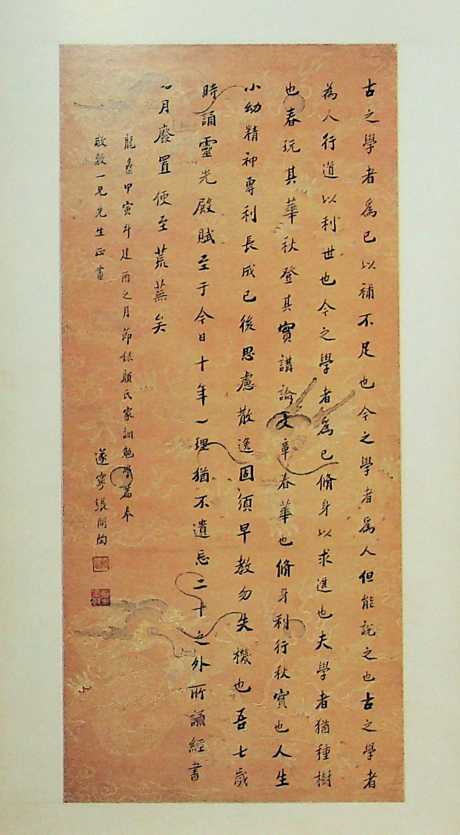 古之學者為己以補不足也今之學者為人但能說之也古之學者
為人行道以利世也今之學者為己脩身以求進也夫學者猶種樹
也春玩其華秋登其實講論文章春華也脩身利行秋實也人生
小幼精神專利長成已後思慮散逸固須早教勿失機也吾七歲
時誦靈光殿賦至于今日十年一理猶不遺忘二十之外所誦經書
一月廢置便至荒蕪矣
龍集甲寅斗建酉之月節錄顏氏家訓勉學篇奉
啟敷一兄先生正書
遂寧張問陶